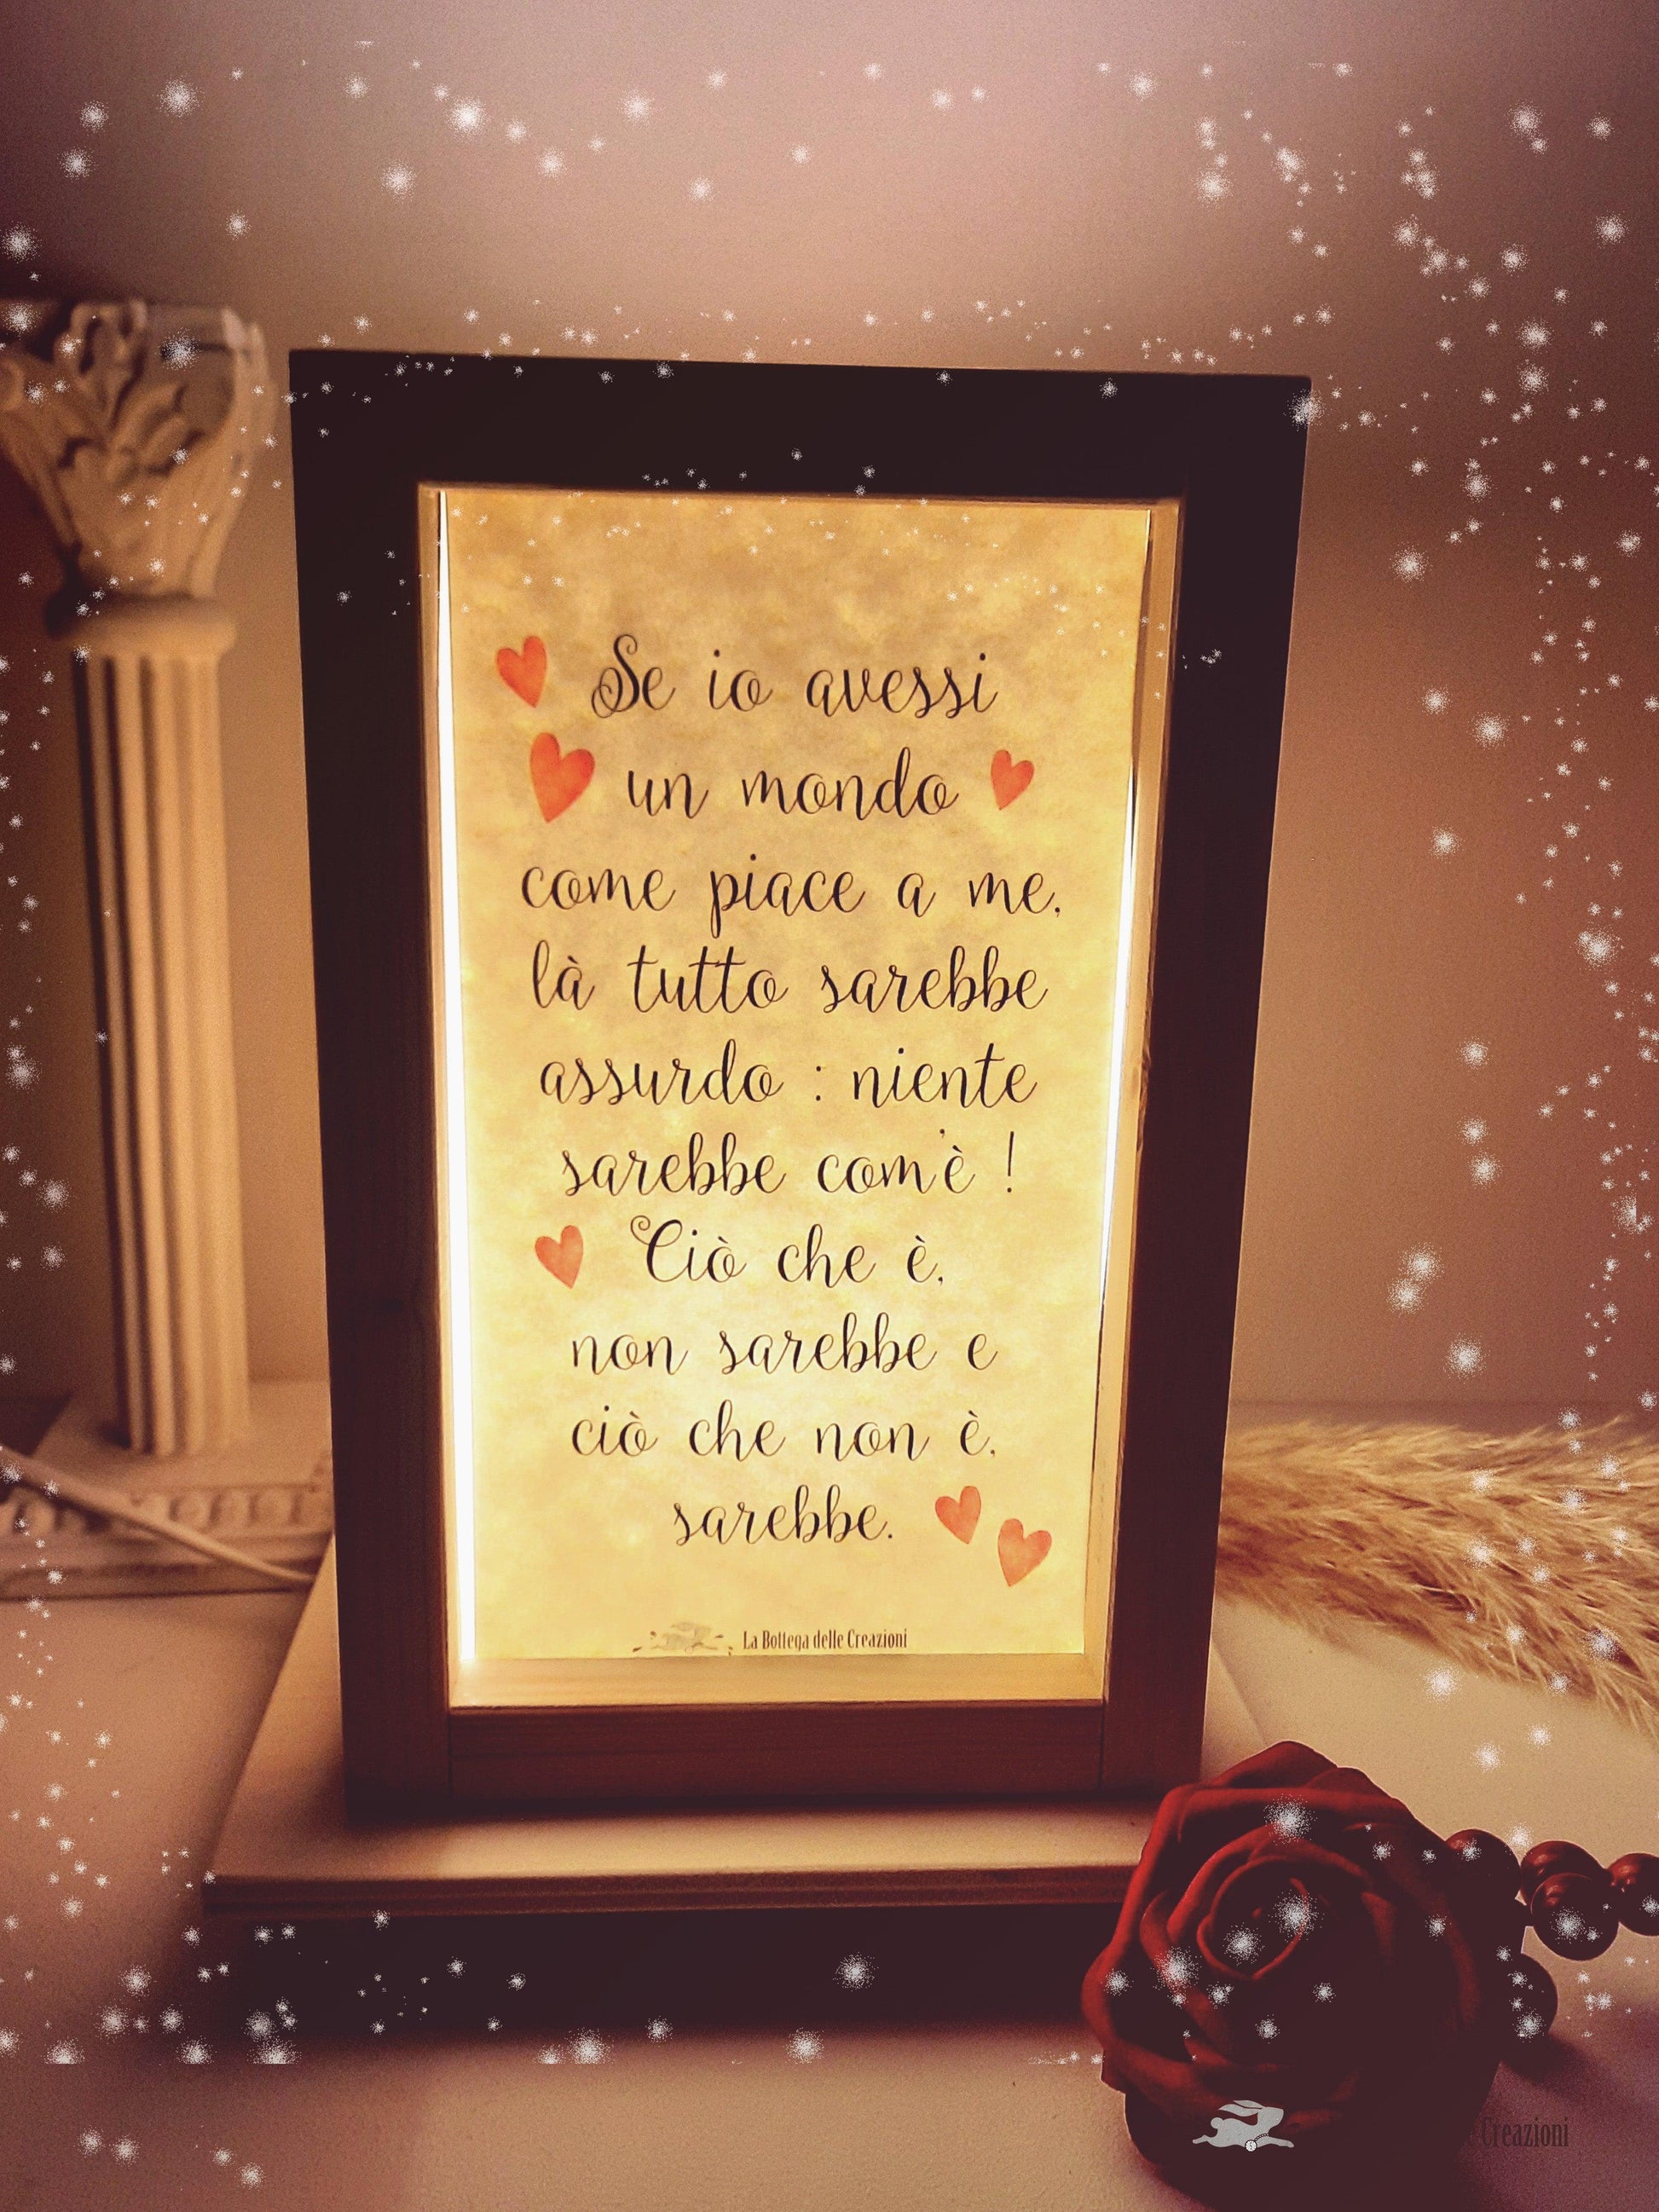 Se io avessi
un mondo
come piace a me,
là tutto sarebbe
assurdo : niente
sarebbe com'è !
Ciò che è,
non sarebbe e
ciò che non è,
sarebbe.
La Bottega delle Creazioni
Creazioni